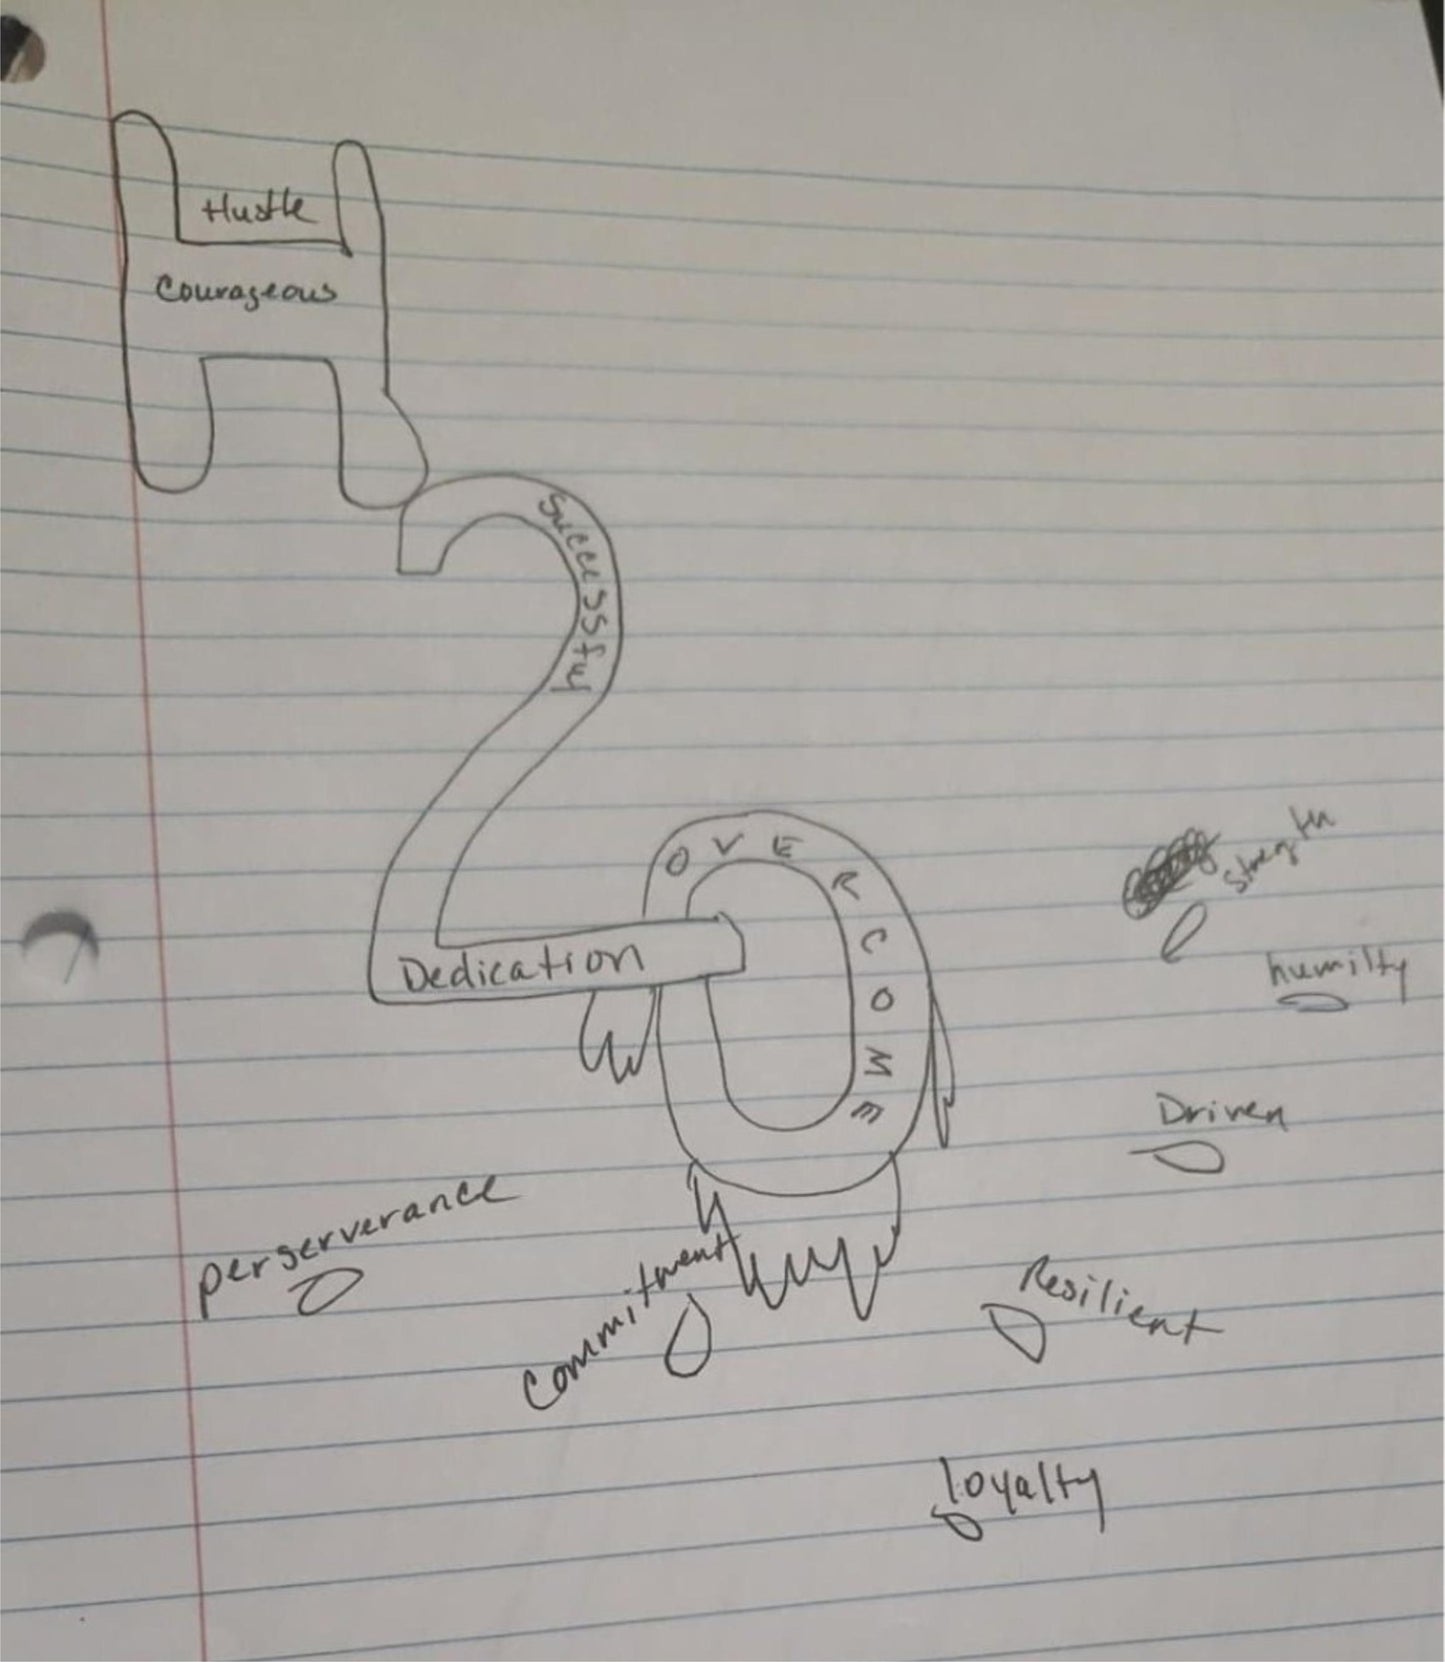 Hustle
Courageous
Successful
OVERCOME
Dedication
Strength
humilty
Driven
perserverance
Commitment
Resilient
loyalty